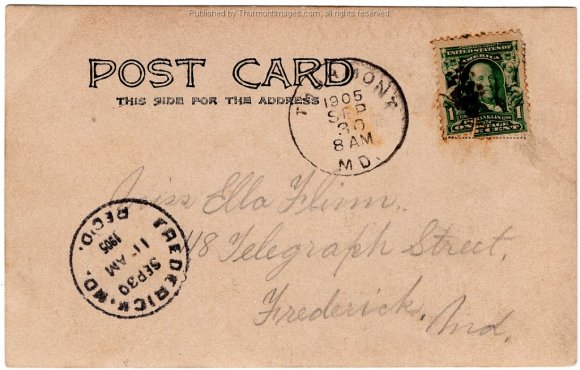 Published by ThurmontImages.com, all rights reserved
POST CARD
THIS SIDE FOR THE ADDRESS
THURMONT
1905
SEP
30
8 AM
MD.
UNITED STATES OF AMERICA
1
FRANKLIN
1
POSTAGE
ONE CENT
Miss Ella Flinn,
48 Telegraph Street,
Frederick, Md.
FREDERICK, MD.
SEP 30
11 AM
1905
REC'D.